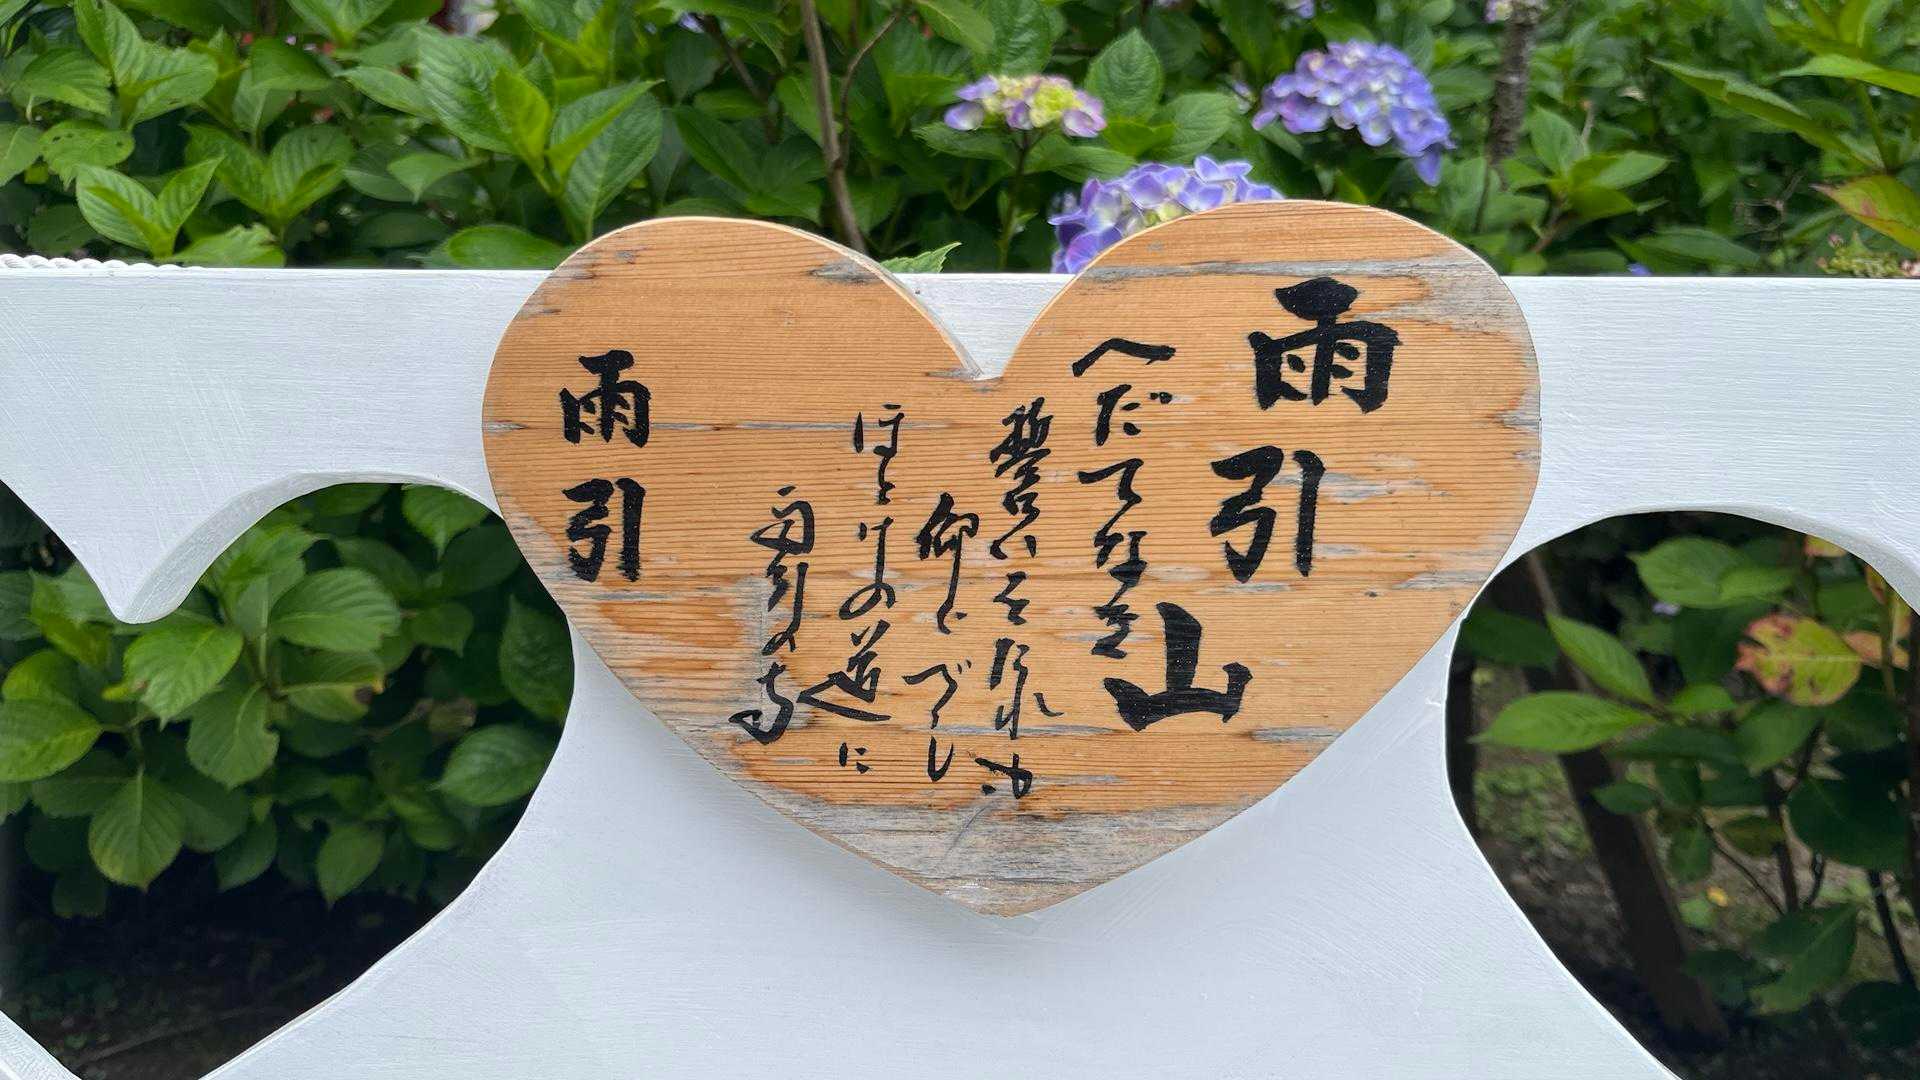 雨引山
へだてなき
誓をたれも
仰ぐべし
ほとけの道に
雨引の寺
雨引